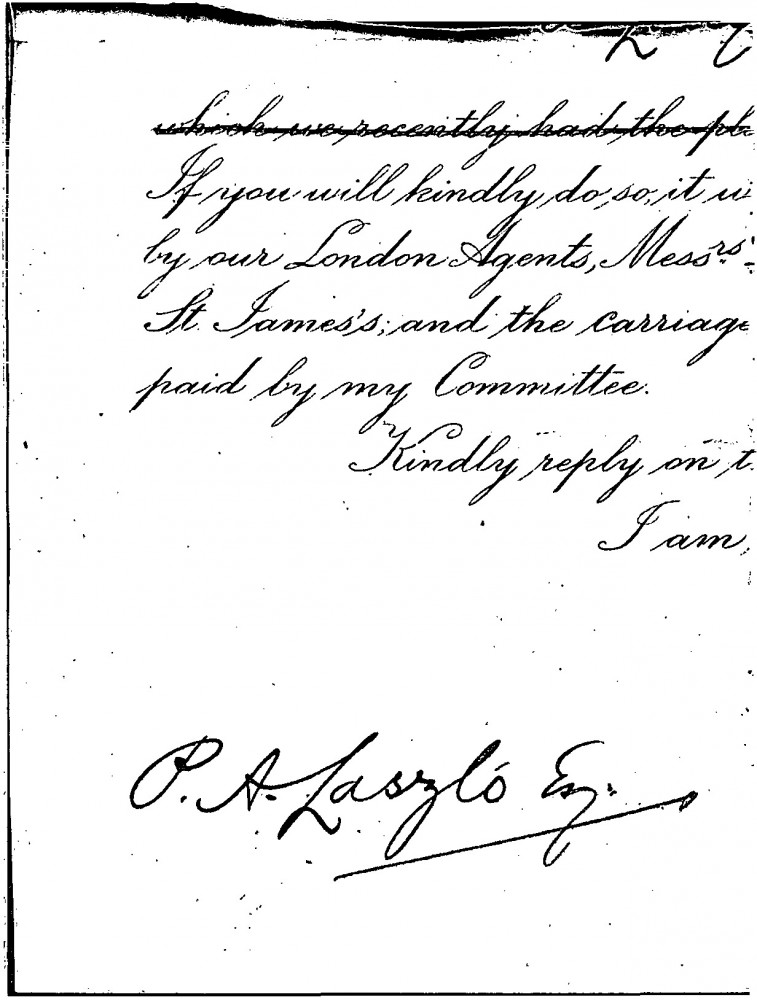 which we recently had the
If you will kindly do so, it
by our London Agents, Messrs.
St. James's; and the carriage
paid by my Committee.
Kindly reply on
I am,
P. A. László Esq.